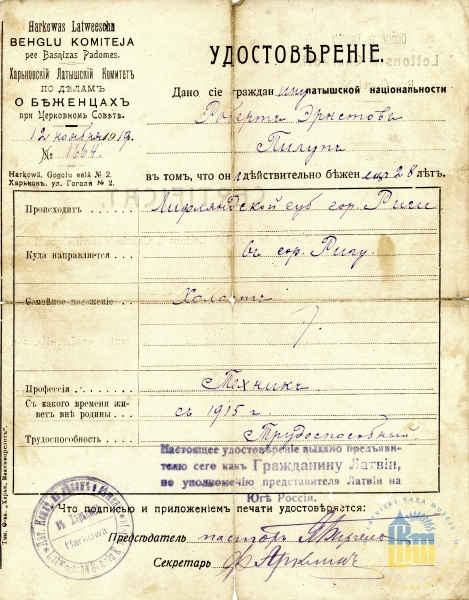 Harkowas Latweeschu
BEHGĻU KOMITEJA
pee Basnizas Padomes.
Харьковскій Латышскій Комитетъ
ПО ДѢЛАМЪ
О БѢЖЕНЦАХЪ
при Церковномъ Совѣтѣ.
12 ноября 1919.
№ 1664.
Harkowâ, Gogoļu eelâ № 2.
Харьковъ, ул. Гоголя № 2.
УДОСТОВѢРЕНІЕ.
Дано сіе гражданину латышской національности
Робертъ Эрнстовъ
Пилупъ
въ томъ, что онъ дѣйствительно бѣженецъ 28 лѣтъ.
Происходитъ Лифляндской губ гор. Риги
Куда направляется въ гор. Ригу.
Семейное положеніе Холостъ
Профессія Техникъ
Съ какого времени живетъ внѣ родины съ 1915 г.
Трудоспособность Трудоспособный.
Настоящее удостовѣреніе выдано предъяви-
телю сего какъ Гражданину Латвіи,
по уполномочію представителя Латвіи на
Югѣ Россіи.
Что подписью и приложеніемъ печати удостовѣряется:
Предсѣдатель пасторъ
Секретарь
Harkowa
LATVIJAS KARA MUZEJS